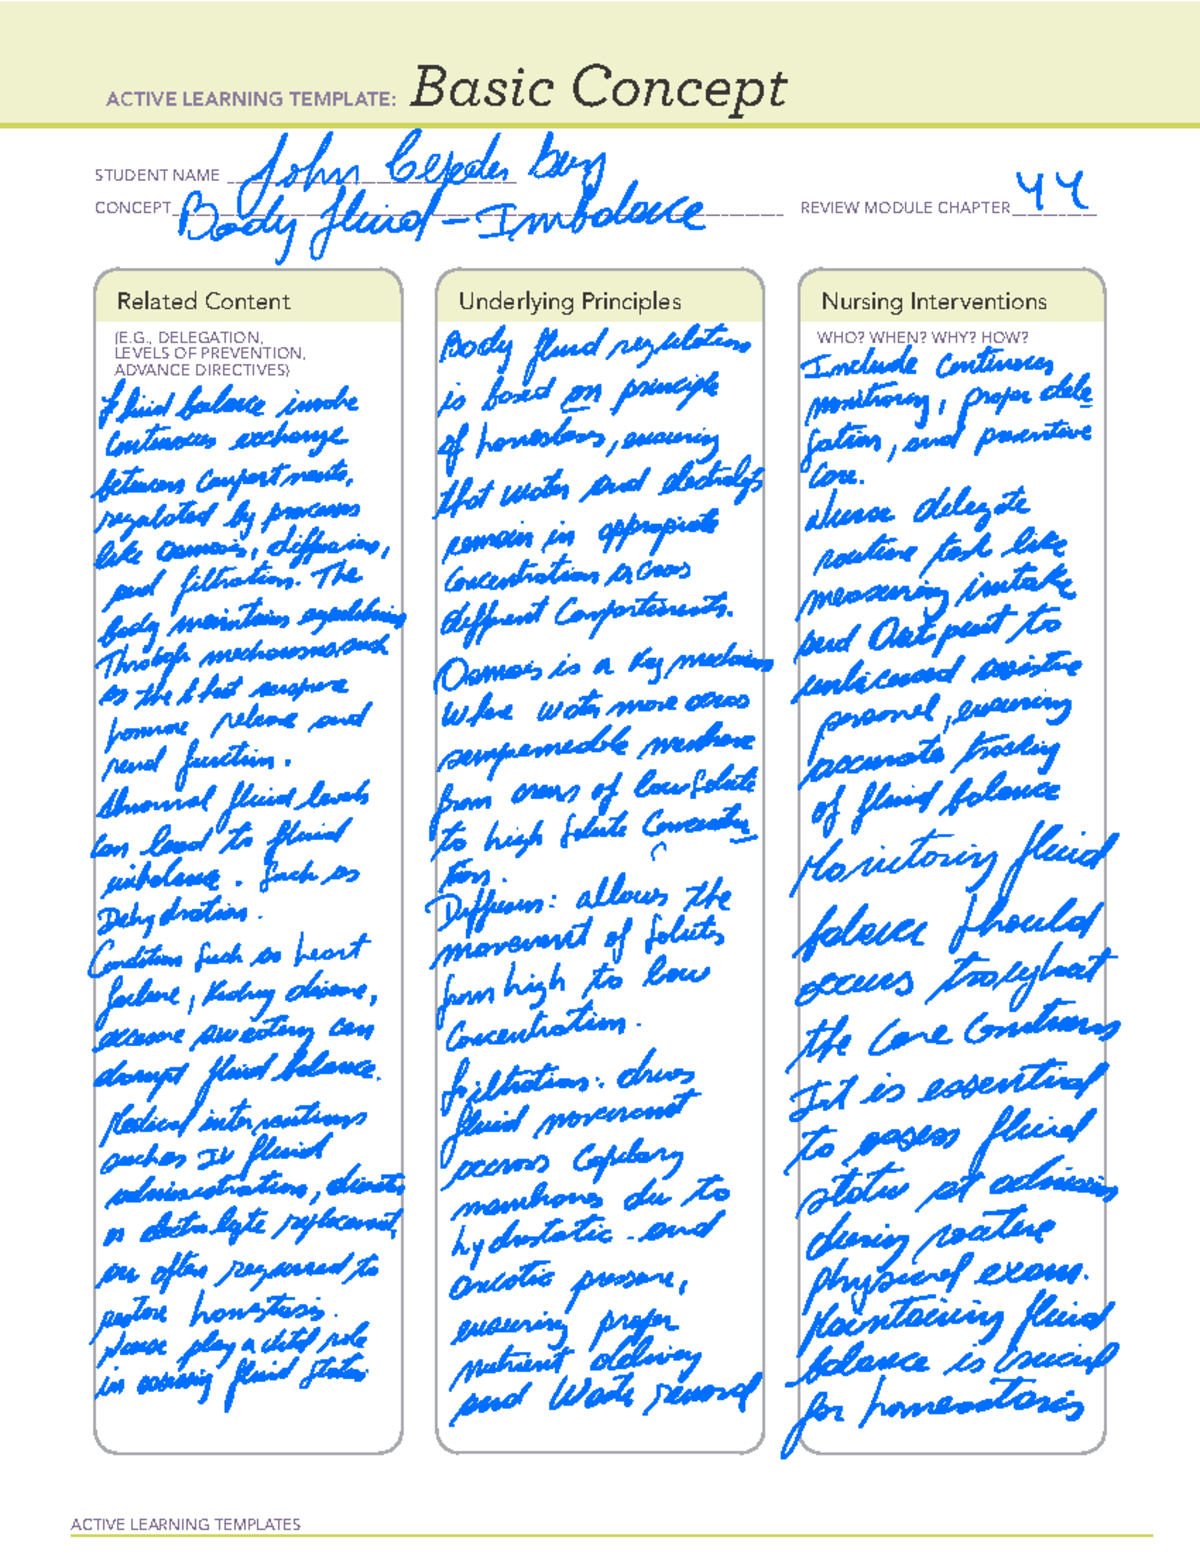 ACTIVE LEARNING TEMPLATE: Basic Concept
STUDENT NAME John
CONCEPT Body fluid - Imbalace
REVIEW MODULE CHAPTER 44
Related Content
(E.G., DELEGATION,
LEVELS OF PREVENTION,
ADVANCE DIRECTIVES)
fluid balance involve
Continuous exchange
between Compartments,
regulated by processes
like Osmosis, diffusion,
and filtration. The
body maintains
Through such
as the
relene and
renal function.
Abnormal fluid levels
Can lead to fluid
imbalance. Such as
Dehydration.
Condition Such as heart
failure, Kidney disease,
sweating can
disrupt fluid balance.
Medical interventions
such as IV fluid
administration,
or replacement
are often required to
restore
Nurse play a vital role
in fluid status
Underlying Principles
Body fluid regulation
is based on principle
of ensuring
that water and
remain in
Concentration
different Compartments.
Osmosis is a Key
where water move
from areas of low Solute
to high Solute Concentra
tion.
Diffusion: allows the
movement of Solutes
from high to low
Concentration.
filtration: drives
fluid movement
accross Capillary
membranes due to
hydrostatic and
oncotic pressure,
ensuring proper
nutrient delivery
and Waste removal
Nursing Interventions
WHO? WHEN? WHY? HOW?
Include Continuous
monitoring, proper dele
gation, and preventive
Care.
Nurse delegate
routine task like
measuring intake
and Out put to
unlicensed assistive
personel, ensuring
accurate tracking
of fluid balance
Monitoring fluid
balance should
occurs
the Care Continuous
It is essential
to assess fluid
status at
during routine
physical exam.
Maintaining fluid
balance is crucial
for homeostasis
ACTIVE LEARNING TEMPLATES